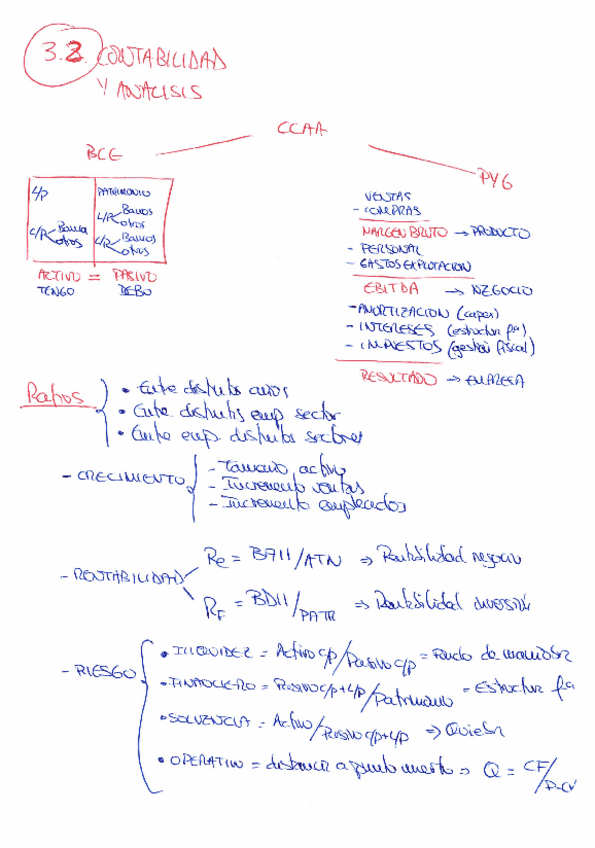 3.2. CONTABILIDAD
Y ANALISIS
CCAA
BCE
L/P
C/P Banca
otros
PATRIMONIO
L/P Bancos
otros
C/P Bancos
otros
ACTIVO = PASIVO
TENGO DEBO
PYG
VENTAS
- COMPRAS
MARGEN BRUTO → PRODUCTO
- PERSONAL
- GASTOS EXPLOTACION
EBITDA → NEGOCIO
- AMORTIZACION (capex)
- INTERESES (estructur fª)
- IMPUESTOS (gestión fiscal)
RESULTADO → EMPRESA
Ratios
• Entre distintos años
• Entre distintas emp sector
• Entre emp. distintos sectores
- CRECIMIENTO
- Tamaño activo
- Incremento ventas
- Incremento empleados
- RENTABILIDAD
Re = BAII/ATN ⇒ Rentabilidad negocio
RF = BDII/PATR ⇒ Rentabilidad inversión
- RIESGO
• ILIQUIDEZ = Activo c/p/Pasivo c/p = Fondo de maniobra
• FINANCIERO = Pasivo c/p+L/p/Patrimonio = Estructur fª
• SOLVENCIA = Activo/Pasivo c/p+L/p ⇒ Quiebra
• OPERATIVO = distancia a punto muerto ⇒ Q = CF/P-CV